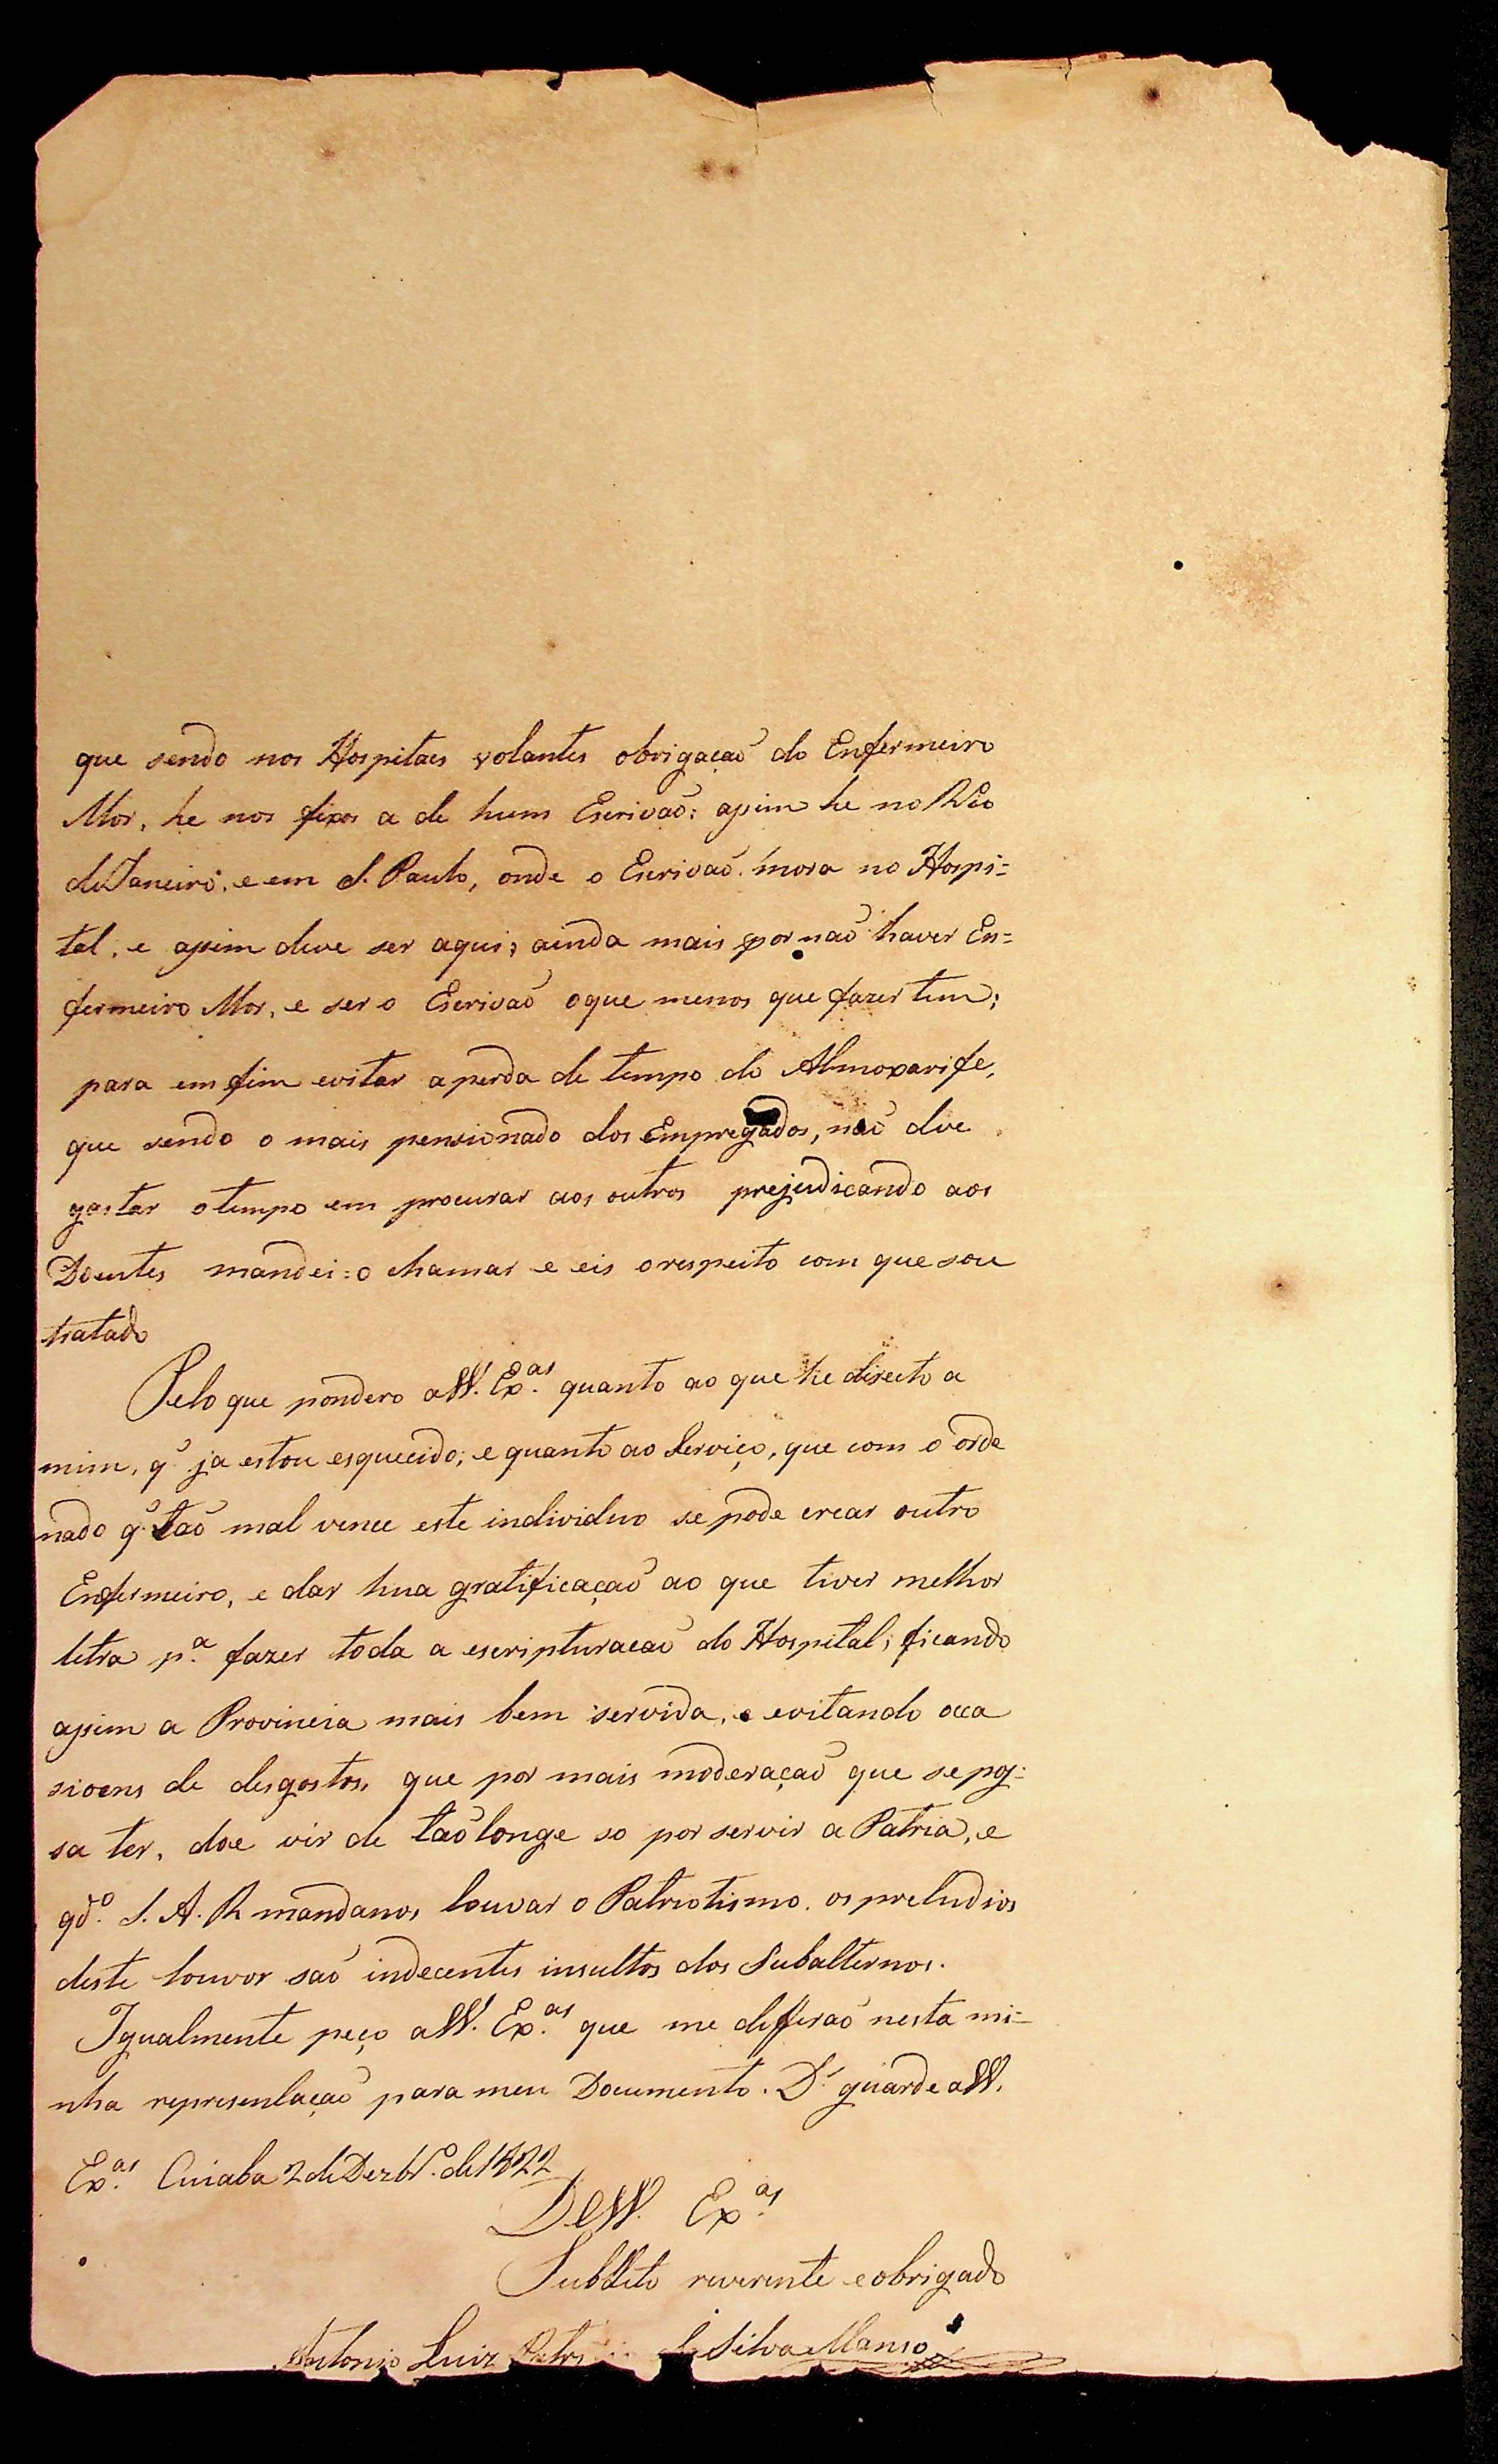 que sendo nos Hospitaes volantes obrigaçaõ do Enfermeiro
Mor, he nos fixos a de hum Escrivaõ: assim he no Rio
de Janeiro, e em S. Paulo, onde o Escrivaõ mora no Hospi=
tal, e assim deve ser aqui; ainda mais por naõ haver En=
fermeiro Mor, e ser o Escrivaõ o que menos que fazer tem;
para em fim evitar a perda de tempo do Almoxarife,
que sendo o mais pensionado dos Empregados, naõ deve
gastar o tempo em procurar aos outros prejudicando aos
Doentes mandei=o chamar e eis o respeito com que sou
tratado
Pelo que pondero a VV. Ex.as quanto ao que he directo a
mim, q̃ ja estou esquecido; e quanto ao Serviço, que com o orde
nado q̃ taõ mal vence este individuo se pode crear outro
Enfermeiro, e dar hua gratificaçaõ ao que tiver melhor
letra p.a fazer toda a escripturacaõ do Hospital; ficando
assim a Provincia mais bem servida, e evitando occa
sioens de desgostos, que por mais moderaçaõ que se pos=
sa ter, doe vir de taõ longe so por servir a Patria, e
qd.o S. A. R mandanos louvar o Patriotismo, os preludios
deste louvor saõ indecentes insultos dos Subalternos.
Igualmente peço a VV. Ex.as que me defferaõ nesta mi=
nha representaçaõ para meu Documento. D.s guarde a VV.
Ex.as Cuiaba 2 de Dezbr.o de 1822
De VV. Ex.as
Subdito reverente e obrigado
Antonio Luiz Patri da Silva Manso